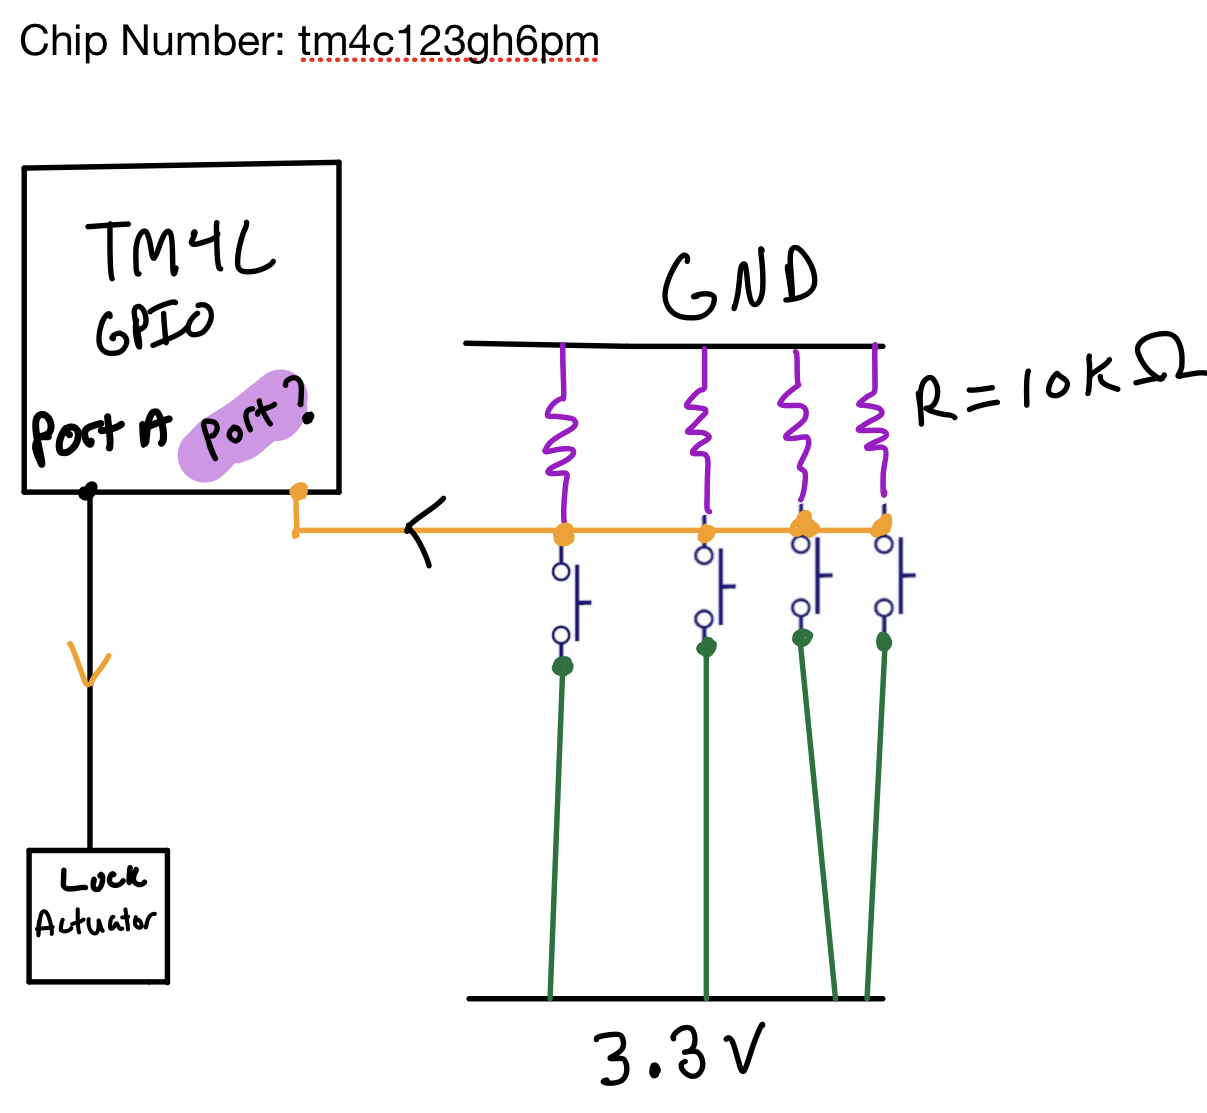 Chip Number: tm4c123gh6pm
TM4C
GPIO
Port A Port?
GND
R=10KΩ
Lock
Actuator
3.3V